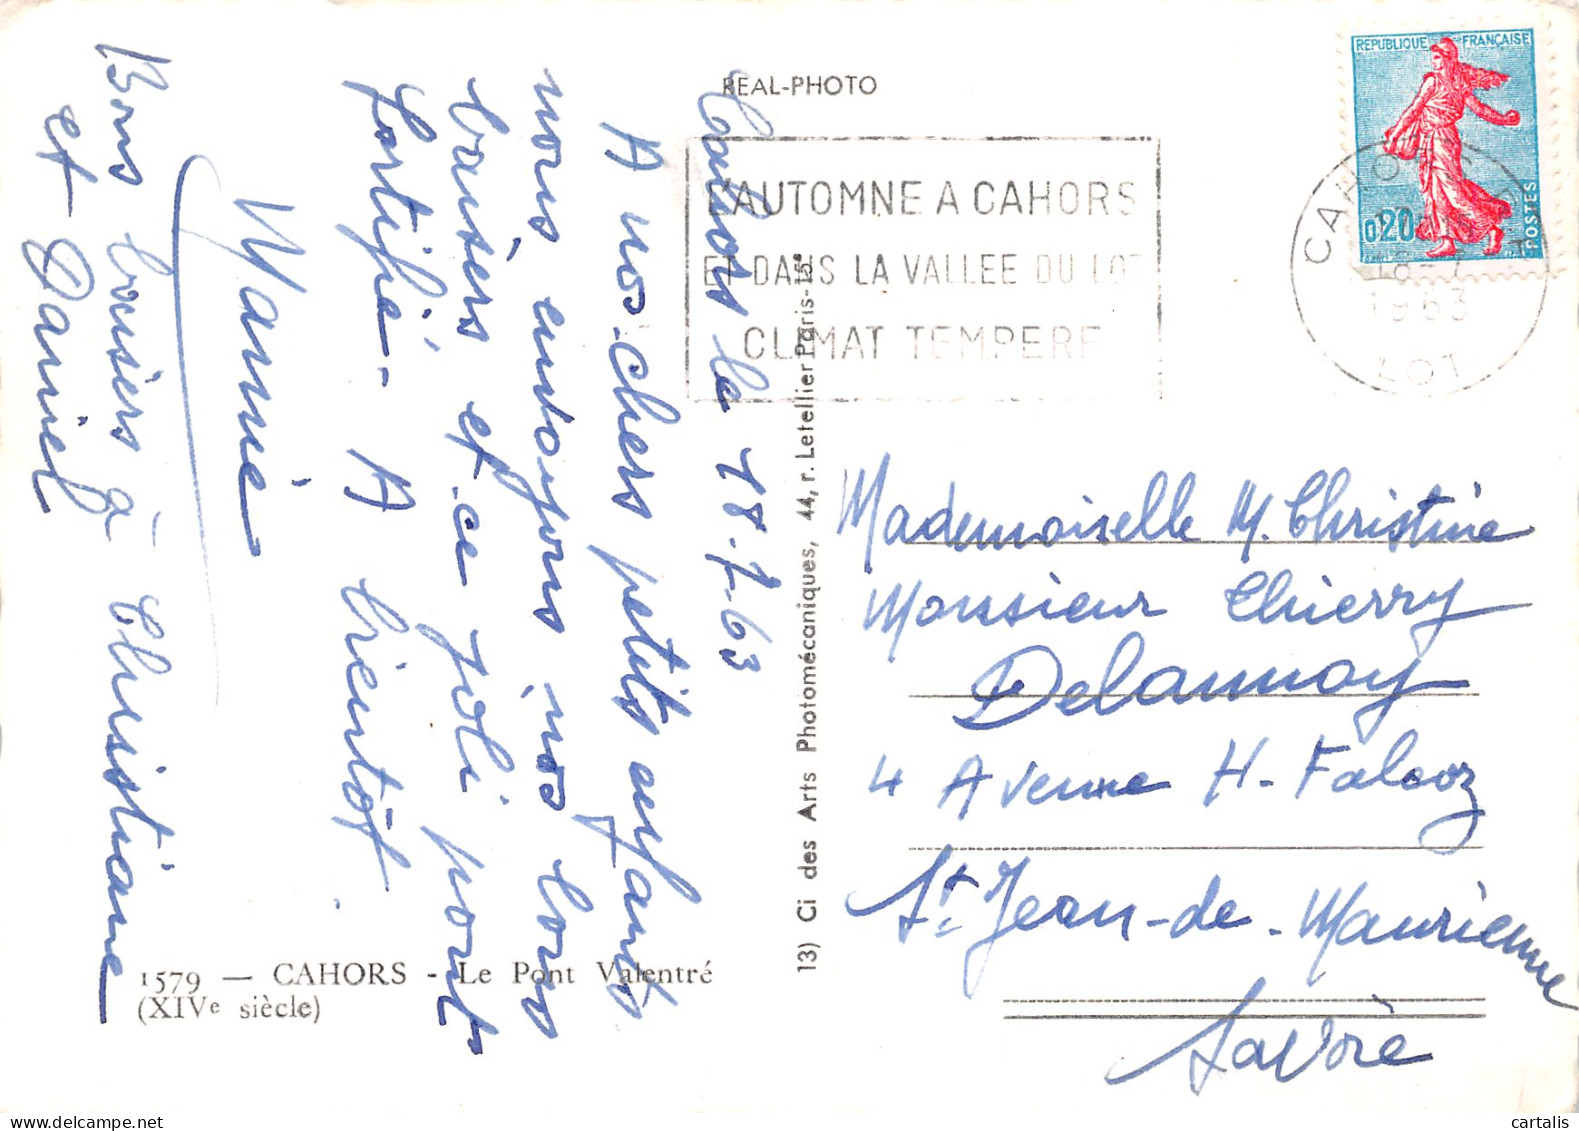 REAL-PHOTO
REPUBLIQUE FRANÇAISE
0,20
POSTES
L'AUTOMNE A CAHORS
ET DANS LA VALLEE DU LOT
CLIMAT TEMPERE
CAHORS
1963
LOT
Cahors le 18-7-63
A nos chers petits enfants
nous envoyons nos bons
baisers et ce joli pont
fortifié - A bientôt
Mamie
Bons baisers à Christiane
et Daniel
1579 — CAHORS - Le Pont Valentré
(XIVe siècle)
13) Ci des Arts Photomécaniques, 44, r. Letellier Paris-15e
Mademoiselle M. Christine
Monsieur Thierry
Delannoy
4 Avenue H. Falcoz
St. Jean-de-Maurienne
Savoie
cartalis
www.delcampe.net